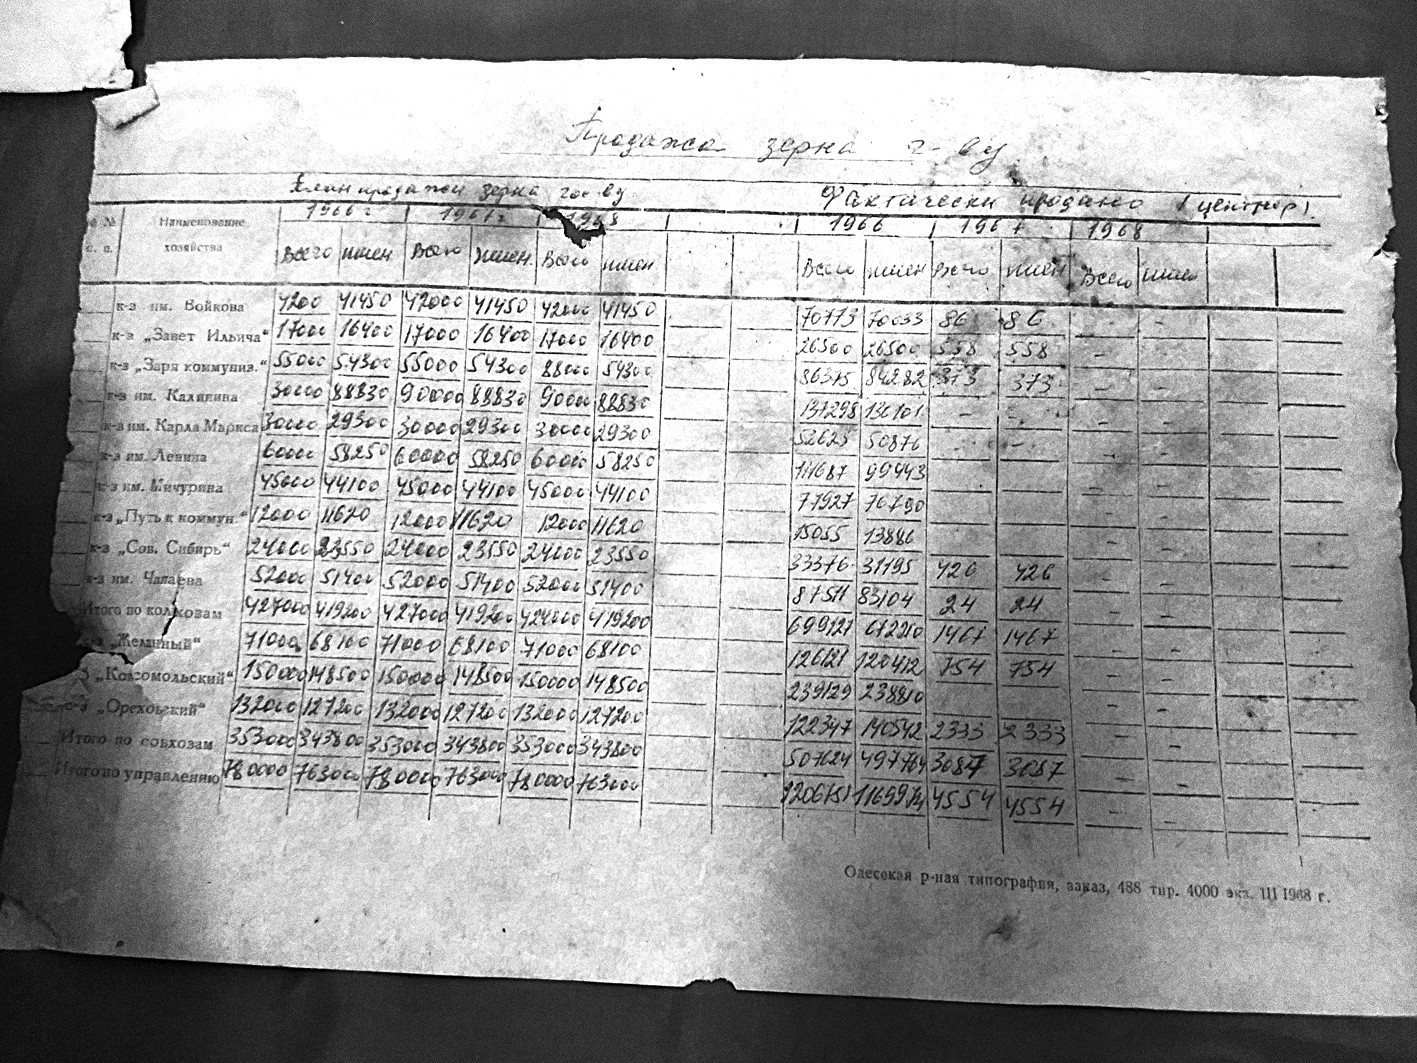 Продажа зерна г-ву
План продажи зерна гос-ву Фактически продано (центнер).
№ Наименование 1966 г 1967 г 1968 1966 1967 1968
п. хозяйства Всего пшен Всего пшен Всего пшен Всего пшен Всего пшен Всего пшен
к-з им. Войкова 4200 41450 42000 41450 42000 41450 70773 70033 86 86 - -
к-з „Завет Ильича“ 17000 16400 17000 16400 17000 16400 26500 26500 558 558 - -
к-з „Заря коммуниз.“ 55000 54300 55000 54300 88000 54300 86375 84282 373 373 - -
к-з им. Калинина 30000 88830 90000 88830 90000 88830 137298 136101 - - - -
к-з им. Карла Маркса 30000 29300 30000 29300 30000 29300 52625 50876 - - - -
к-з им. Ленина 60000 58250 60000 58250 60000 58250 99443 - -
к-з им. Мичурина 45000 44100 45000 44100 45000 44100 77927 76790 - -
к-з „Путь к коммун.“ 12000 11620 12000 11620 12000 11620 15055 13886 - -
к-з „Сов. Сибирь“ 24000 23550 24000 23550 24000 23550 33376 31795 426 426 - -
к-з им. Чапаева 52000 51400 52000 51400 52000 51400 87511 83104 24 24 - -
Итого по колхозам 427000 419200 427000 419200 427000 419200 699121 1467 1467 - -
„Желанный“ 71000 68100 71000 68100 71000 68100 126121 120412 754 754 - -
„Комсомольский“ 150000 148500 150000 148500 150000 148500 239129 238810 - -
„Ореховский“ 132000 127200 132000 127200 132000 127200 122347 140542 2333 2333 - -
Итого по совхозам 353000 343800 353000 343800 353000 343800 507624 497764 3087 3087 - -
Итого по управлению 780000 763000 780000 763000 780000 763000 4554 4554 - -
Одесская р-ная типография, заказ, 488 тир. 4000 экз. III 1968 г.